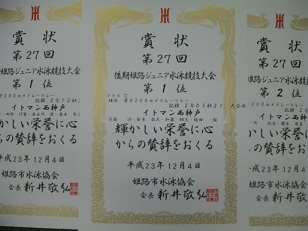 賞状
第27回
姫路ジュニア水泳競技大会
第1位
イトマン西神戸
かしい栄誉に心
らの賛辞をおくる
平成23年12月4日
姫路市水泳協会
会長 新井敬弘
賞状
第27回
後期姫路ジュニア水泳競技大会
第1位
記録 2分05秒21 大会新
イトマン西神戸
輝かしい栄誉に心
からの賛辞をおくる
平成23年12月4日
姫路市水泳協会
会長 新井敬弘
賞状
第27回
後期姫路ジュニア水泳
第2位
イトマン西神
輝かしい栄
からの賛辞
平成23年12
姫路市水
会長 新